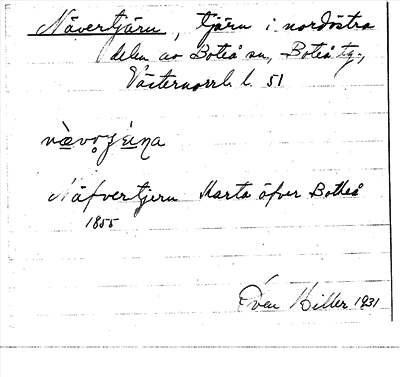 Nävertjärn, tjärn i nordöstra
delen av Boteå sn, Boteå tg.,
Västernorrl. l. 51
Näfvertjern Karta öfver Botheå
1855
Sven Hiller 1931